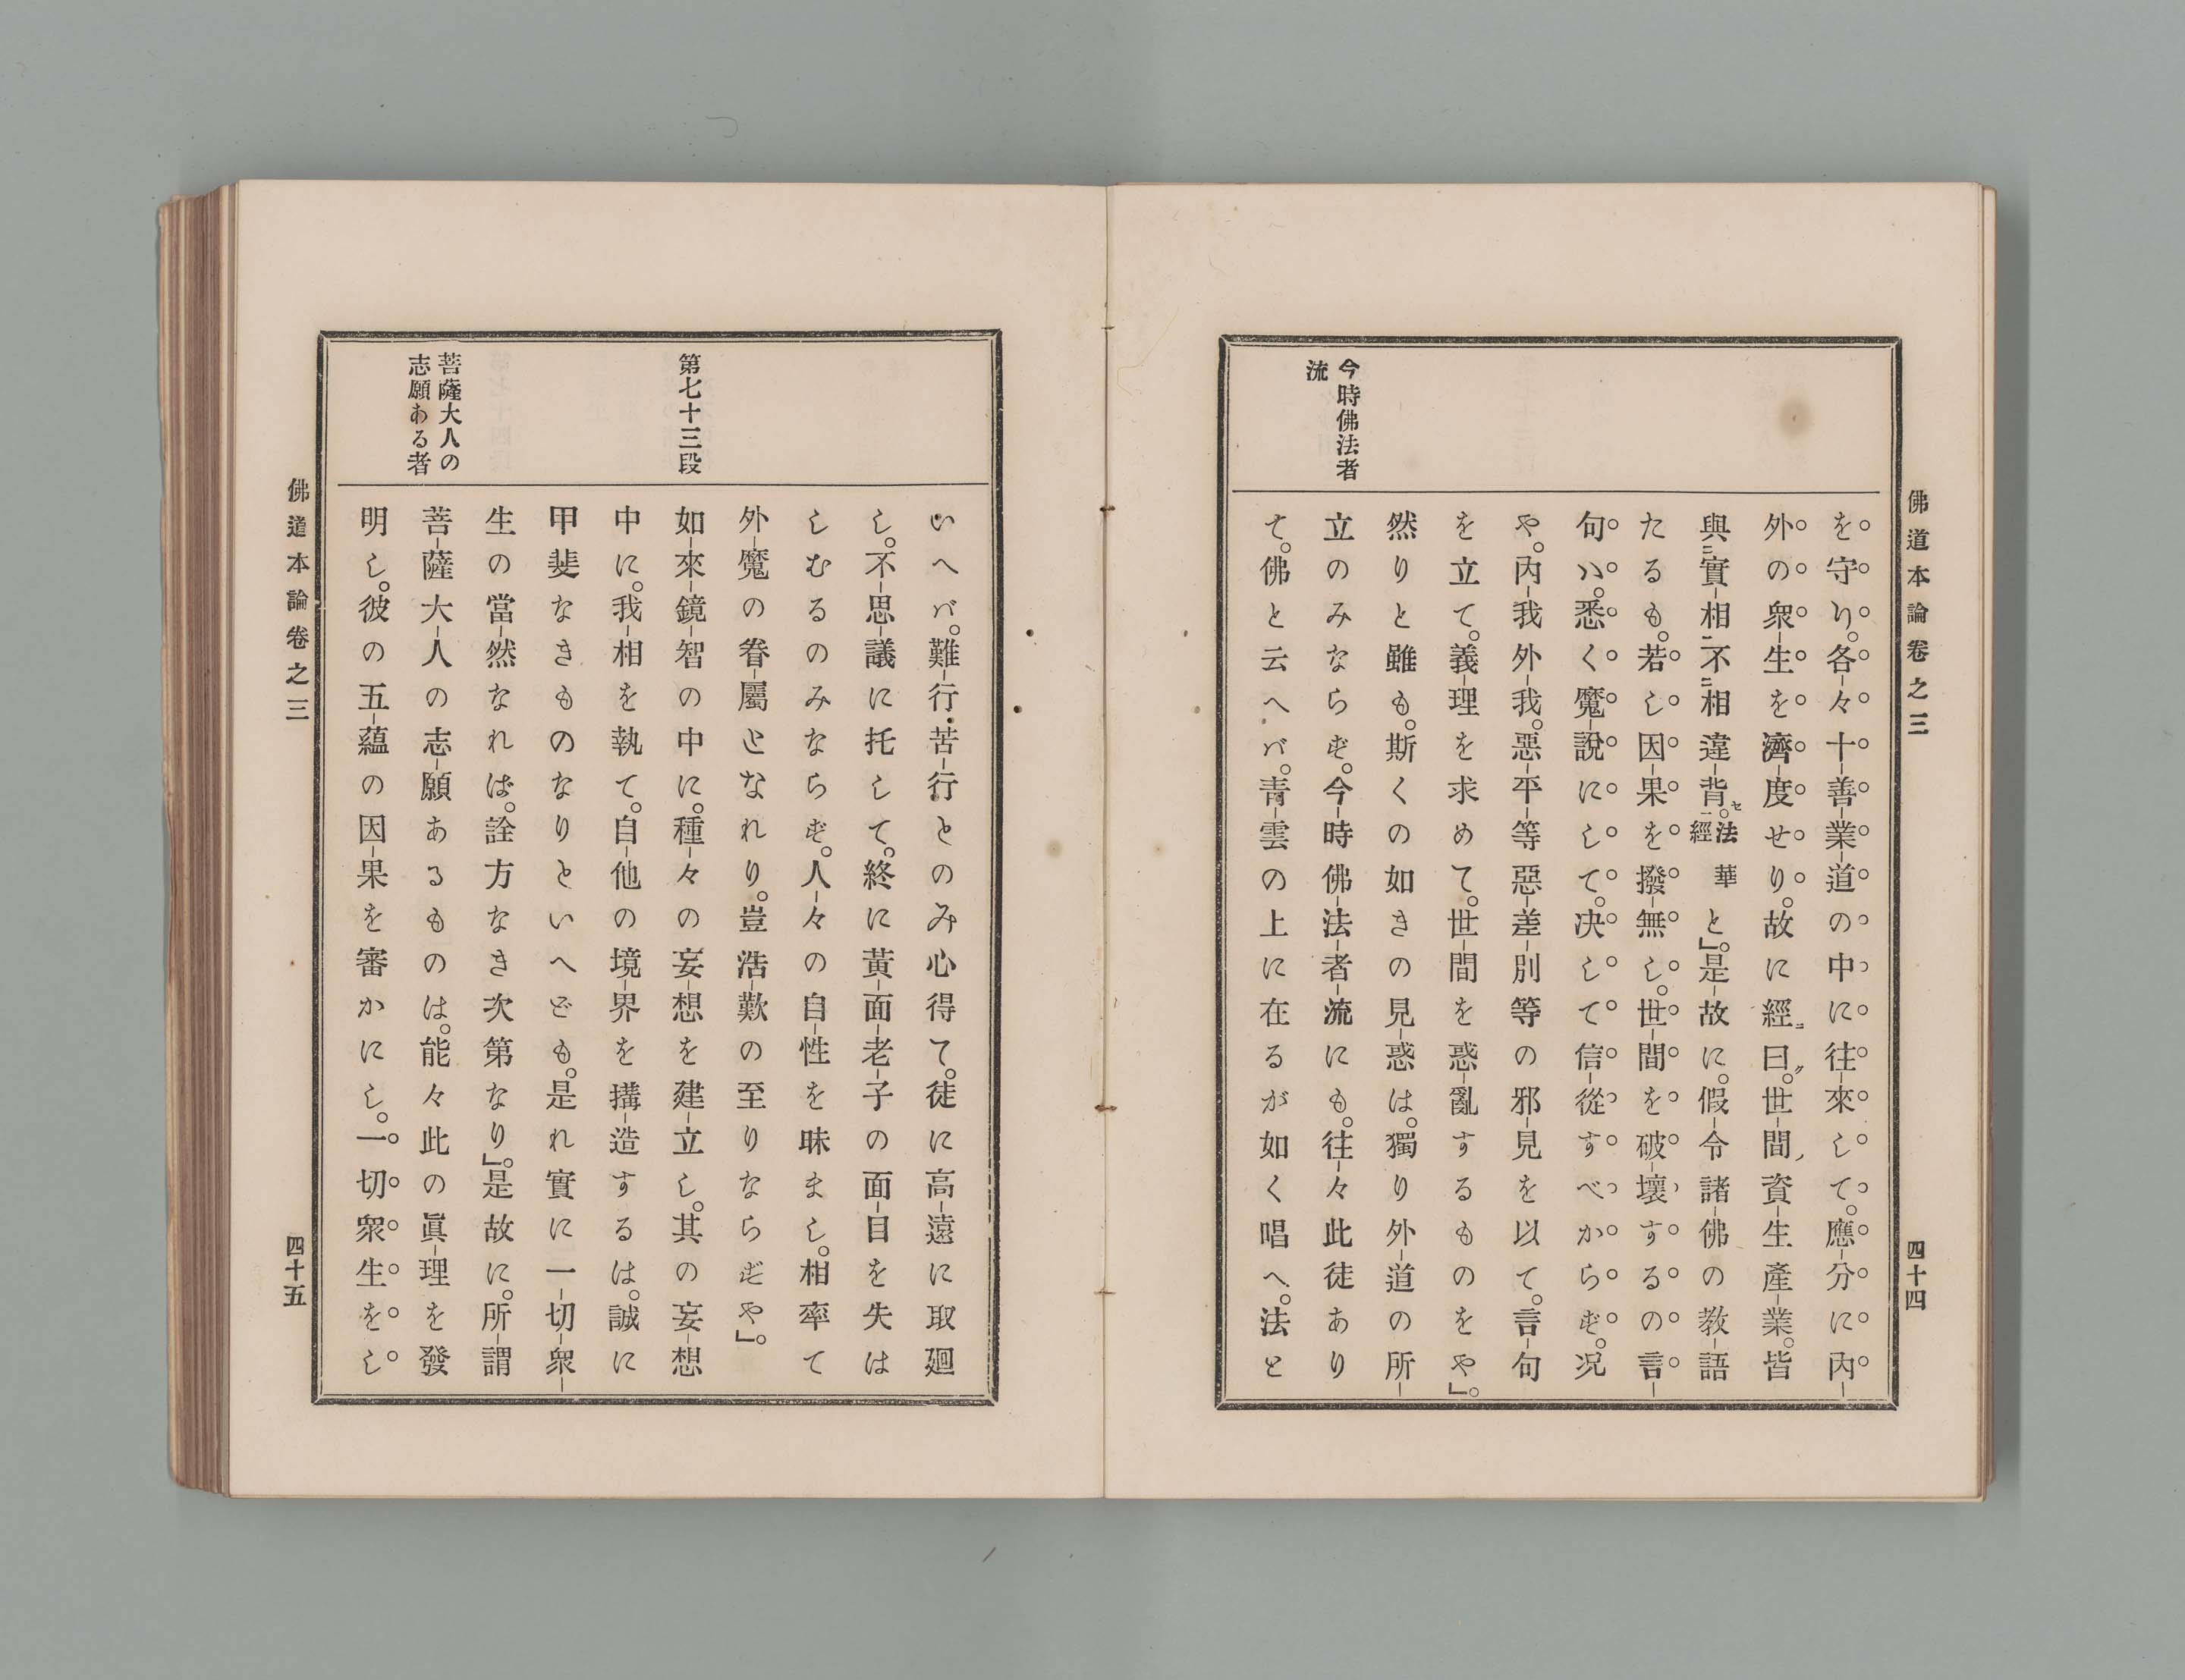 佛道本論卷之三
四十四
今時佛法者
流
を守り。各々十善業道の中に往來して。應分に内
外の衆生を濟度せり。故に經ニ曰ク。世間ノ資生產業。皆
與ニ實相ニ不ニ相違背セ。法華經と』。是故に。假令諸佛の教語
たるも。若し因果を撥無し。世間を破壞するの言
句ハ。悉く魔說にして。決して信從すべからず。况
や。内我外我。惡平等惡差別等の邪見を以て。言句
を立て。義理を求めて。世間を惑亂するものをや』。
然りと雖も。斯くの如きの見惑は。獨り外道の所
立のみならず。今時佛法者流にも。往々此徒あり
て。佛と云へバ。青雲の上に在るが如く唱へ。法と
いへバ。難行苦行とのみ心得て。徒に高遠に取廻
し。不思議に托して。終に黃面老子の面目を失は
しむるのみならず。人々の自性を昧まし。相率て
外魔の眷屬となれり。豈浩歎の至りならずや』。
第七十三段
如來鏡智の中に。種々の妄想を建立し。其の妄想
中に。我相を執て。自他の境界を搆造するは。誠に
甲斐なきものなりといへども。是れ實に一切衆
生の當然なれば。詮方なき次第なり』。是故に。所謂
菩薩大人の
志願ある者
菩薩大人の志願あるものは。能々此の眞理を發
明し。彼の五蘊の因果を審かにし。一切衆生をし
佛道本論卷之三
四十五